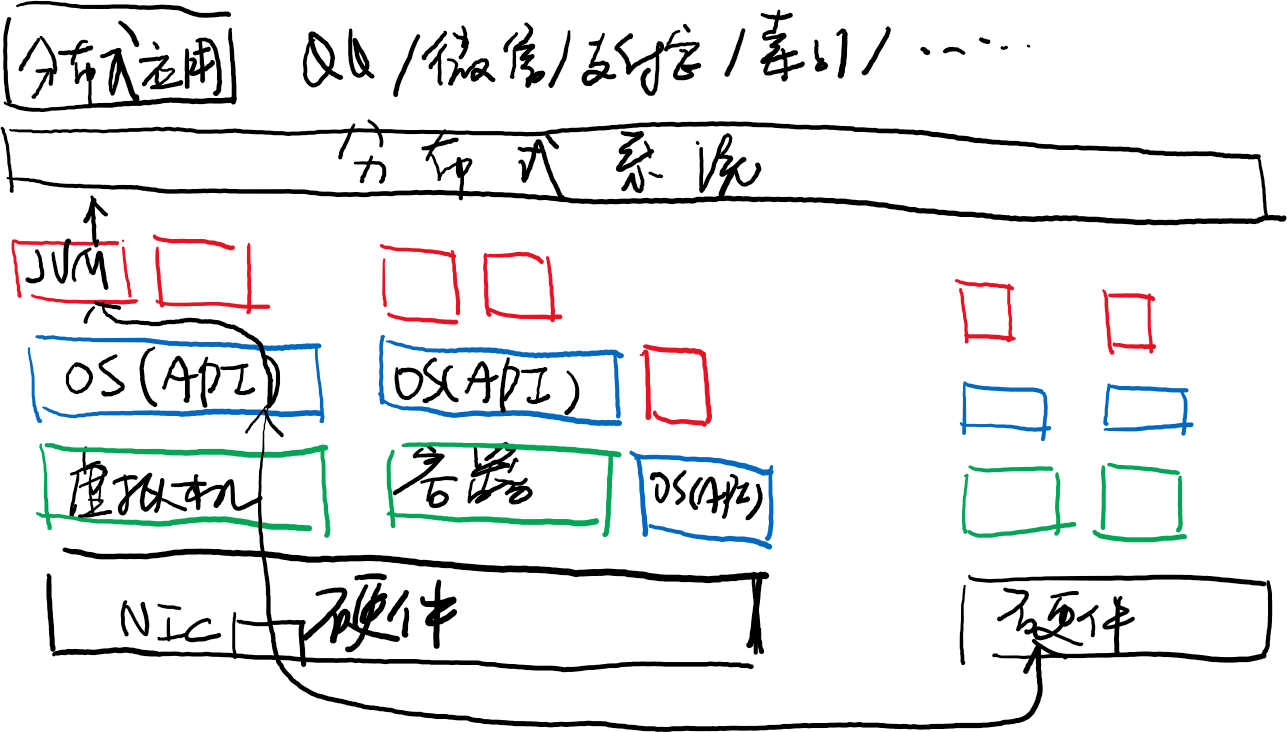 分布式应用 QQ/微信/支付宝/
分布式系统
JVM
OS(API) OS(API)
虚拟机 容器 OS(API)
NIC 硬件 硬件